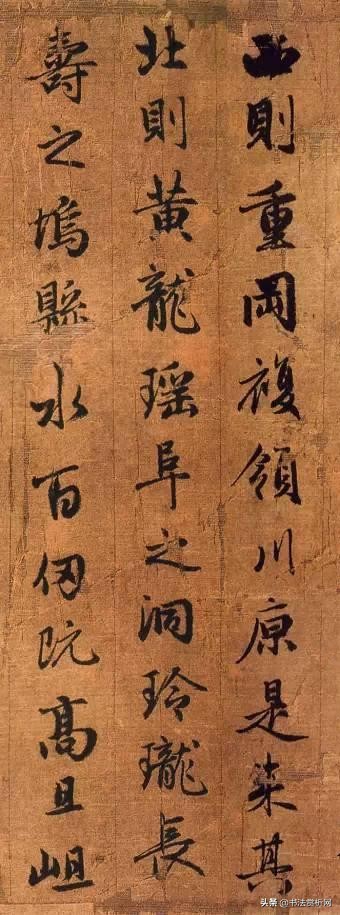 西則重岡複領川原是来其
北則黄龍瑶阜之洞玲瓏長
壽之塢縣水百仞既高且岨
头条 @书法赏析网